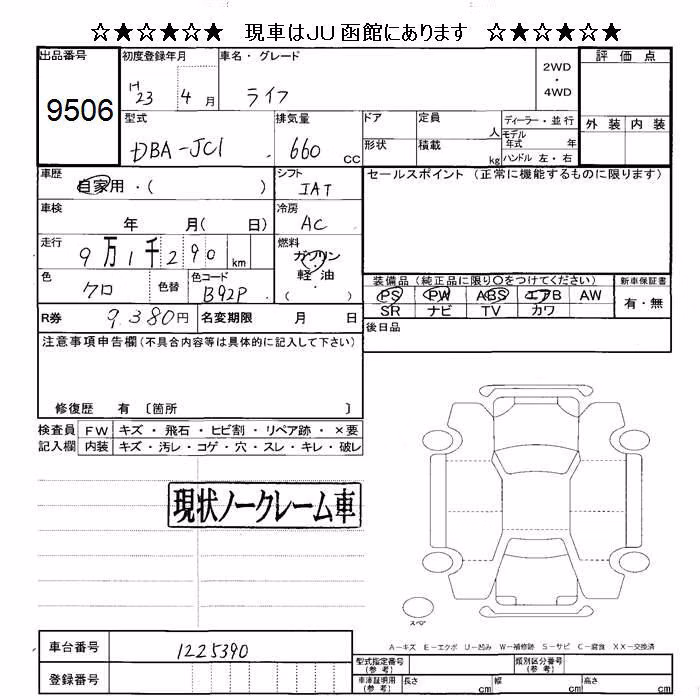 ☆★☆★☆★ 現車はJU函館にあります ☆★☆★☆★
出品番号 初度登録年月 車名・グレード 2WD ・ 4WD 評価点
9506 H23 4月 ライフ
型式 排気量 ドア 定員 人 ディーラー・並行 外装 内装
DBA-JC1 660 CC 形状 積載 kg モデル年式 年
ハンドル 左・右
車歴 自家用・( ) シフト IAT セールスポイント(正常に機能するものに限ります)
車検 年 月( 日) 冷房 AC
走行 9万1千290km 燃料 ガソリン 軽油 ( )
色 クロ 色替 色コード B92P
装備品(純正品に限り○をつけてください) 新車保証書
PS PW ABS エアB AW 有・無
SR ナビ TV カワ
R券 9,380円 名変期限 月 日 後日品
注意事項申告欄(不具合内容等は具体的に記入して下さい)
修復歴 有 〔箇所 〕
検査員 FW キズ・飛石・ヒビ割・リペア跡・×要
記入欄 内装 キズ・汚レ・コゲ・穴・スレ・キレ・破レ
現状ノークレーム車
スペア
車台番号 1225390
A-キズ E-エクボ U-凹み W-補修跡 S-サビ C-腐食 XX-交換済
登録番号
型式指定番号(参考) 類別区分番号(参考)
車庫証明用(参考) 長さ cm 幅 cm 高さ cm